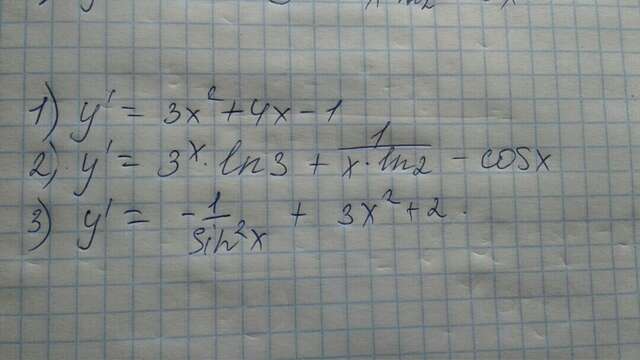 1) y' = 3x² + 4x - 1
2) y' = 3ˣ · ln3 + 1/(x · ln2) - cosx
3) y' = - 1/sin²x + 3x² + 2.